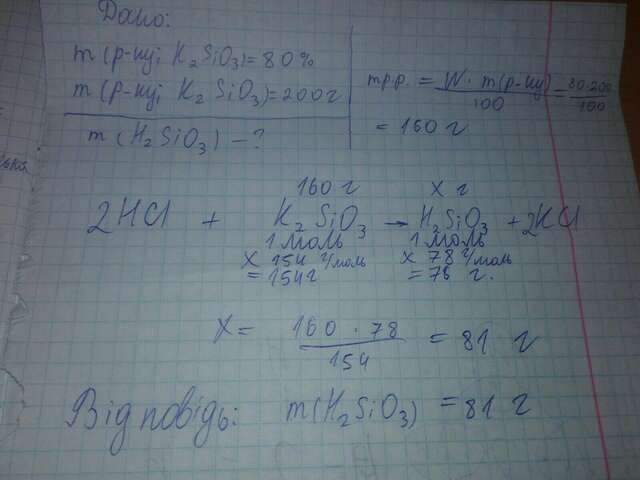 Дано:
m (р-ну; K₂SiO₃)=80%
m (р-ну; K₂SiO₃)=200г
m (H₂SiO₃) – ?
mр.р. = W · m(р-ну) / 100 = 80·200 / 100
= 160 г
160 г x г
2HCl + K₂SiO₃ → H₂SiO₃ + 2KCl
1 моль 1 моль
x 154 г/моль x 78 г/моль
= 154г = 78 г.
X = 160 · 78 / 154 = 81 г
Відповідь: m(H₂SiO₃) = 81 г